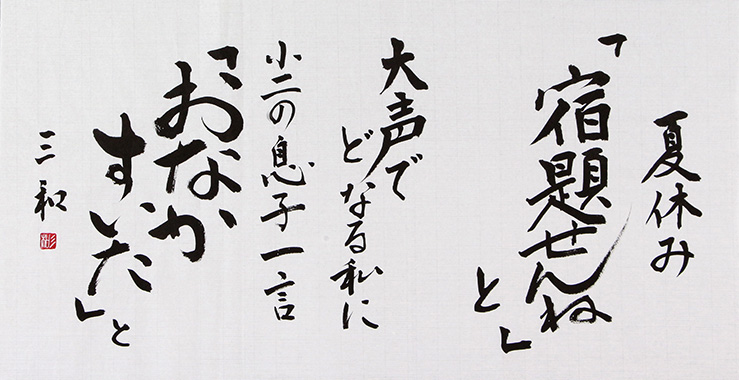 夏休み
「宿題せんね
と」
大声で
どなる私に
小二の息子一言
「おなか
すいた」と
三和